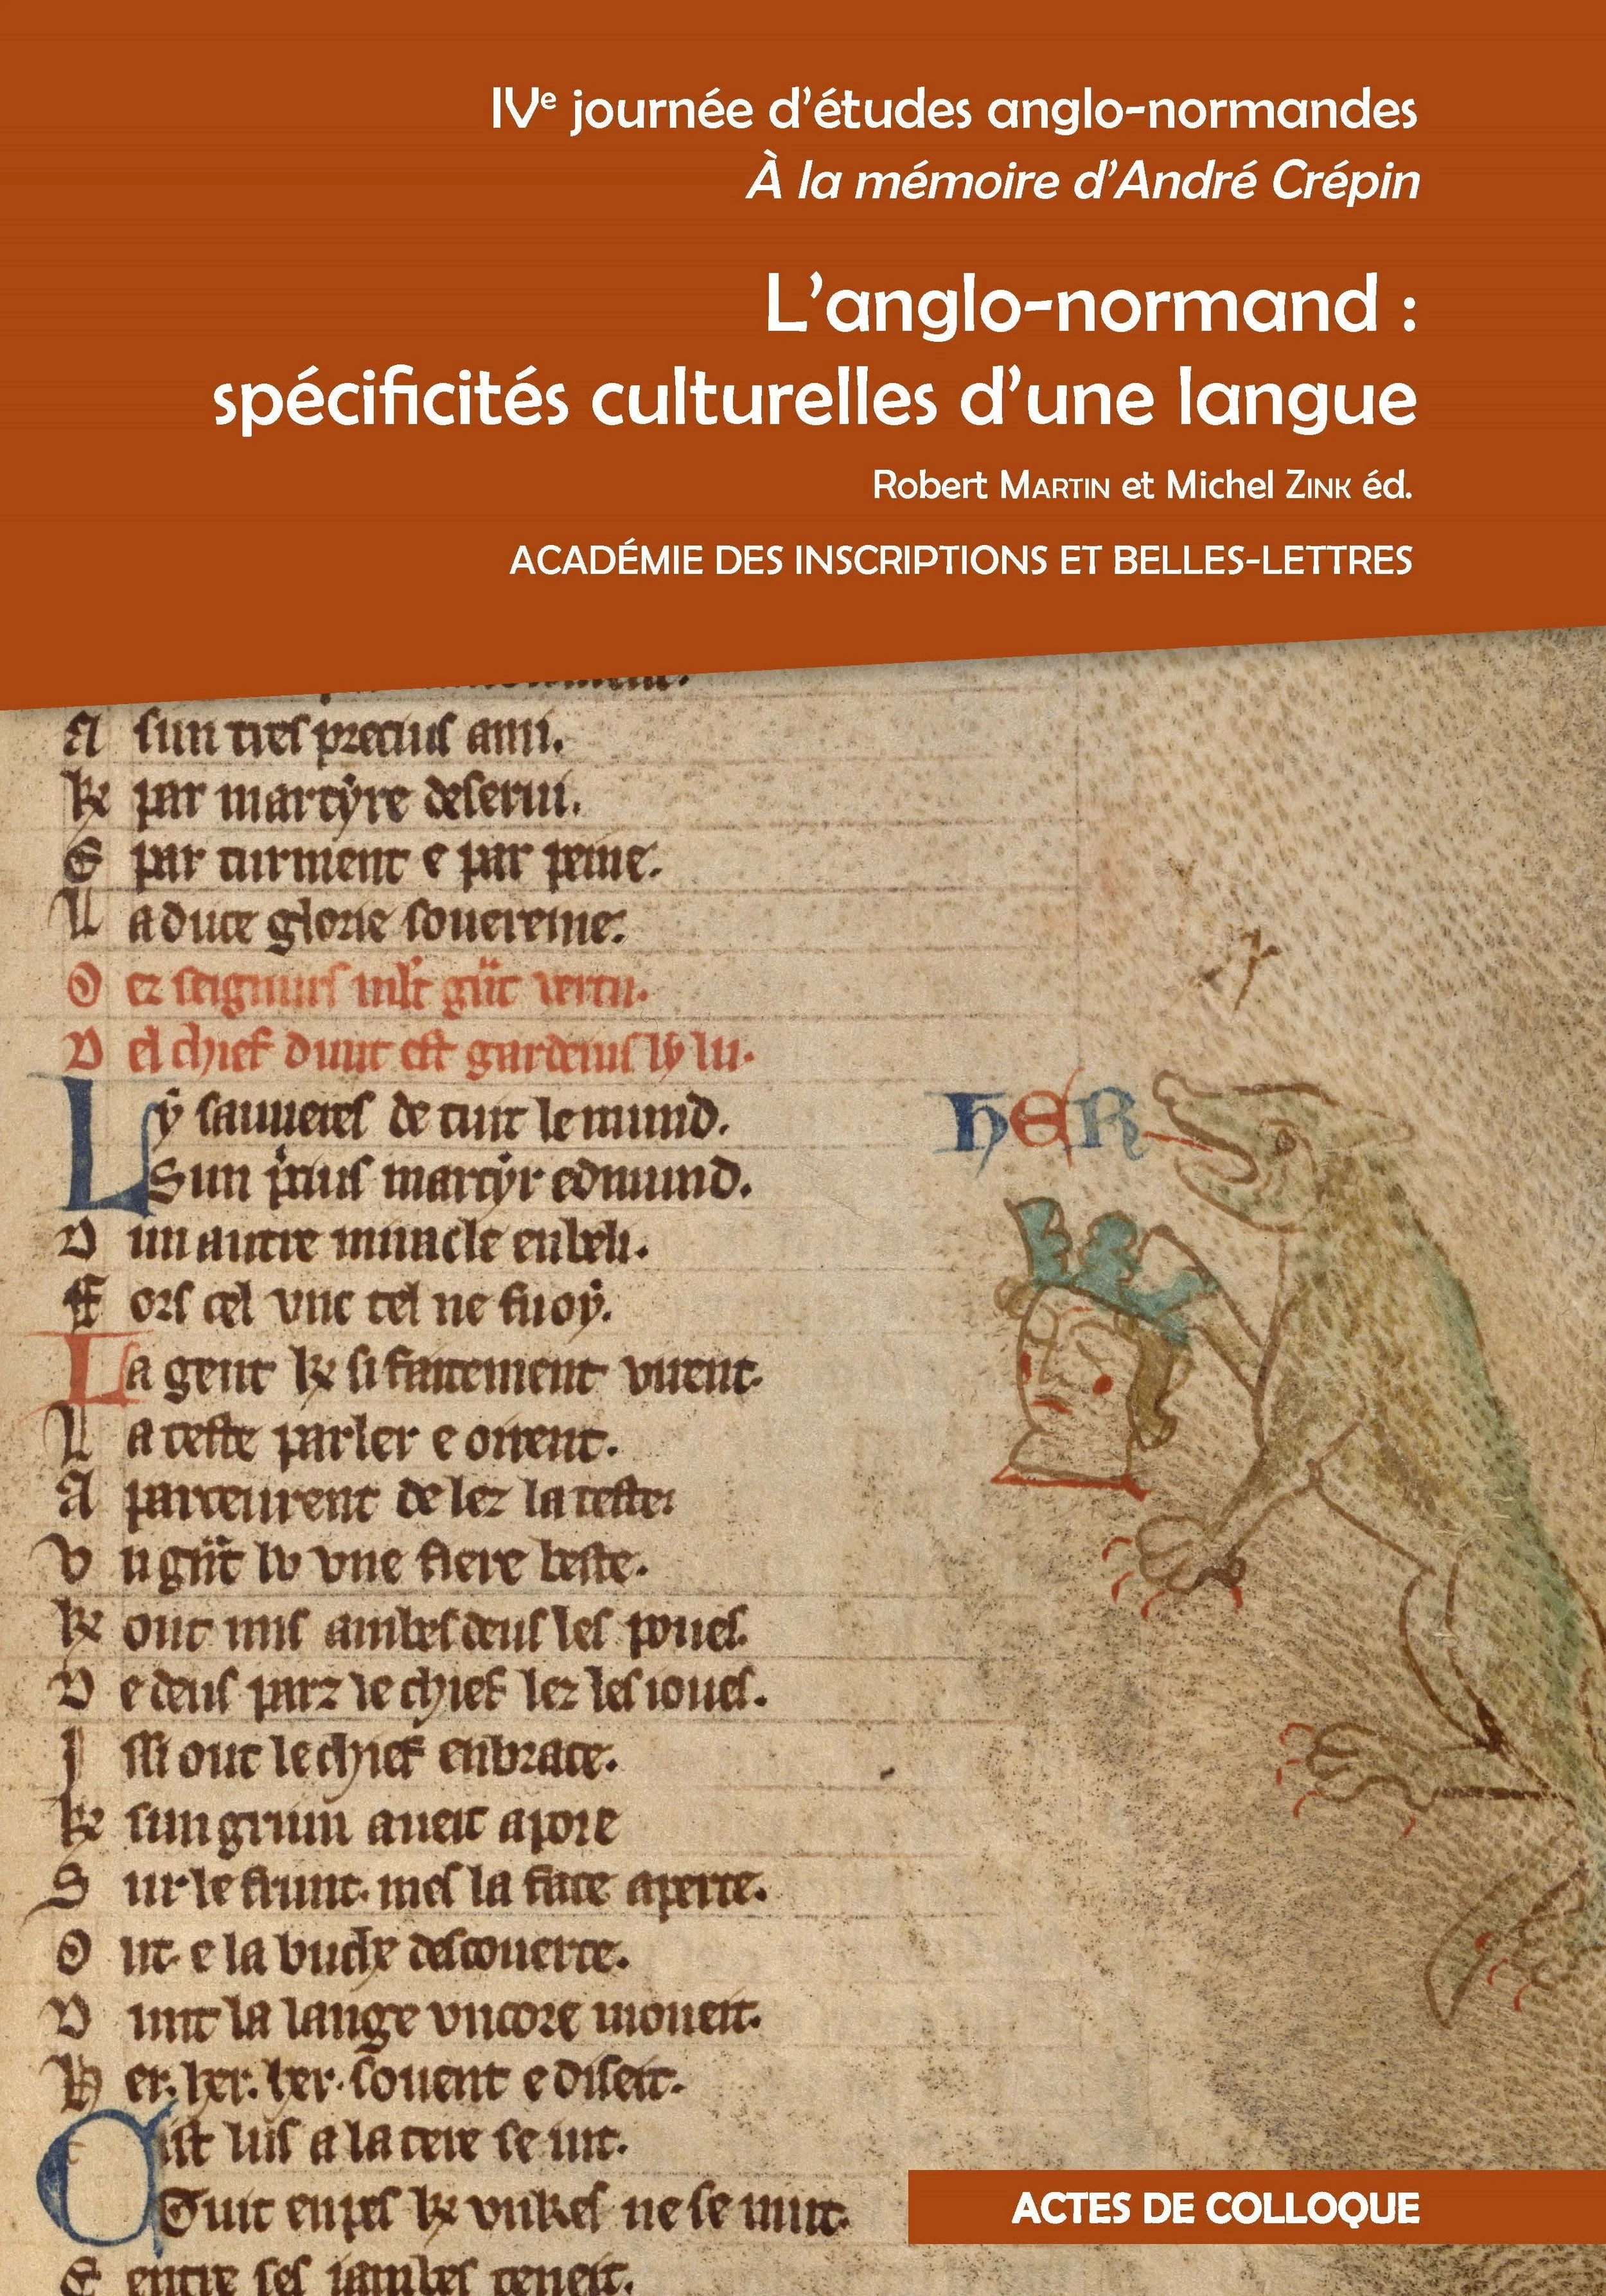 IVe journée d'études anglo-normandes
À la mémoire d'André Crépin
L'anglo-normand :
spécificités culturelles d'une langue
Robert MARTIN et Michel ZINK éd.
ACADÉMIE DES INSCRIPTIONS ET BELLES-LETTRES
A sun tres precius ami.
Ke par martyre deserui.
E par turment e par peine.
La duce glorie souereine.
Oez seignurs
Del chief dunt est gardeins lu lu.
Ly sauueres de tuit le mund.
Sun martyr edmund.
Dun autre miracle enbeli.
Fors cel vnc tel ne fu oy.
La gent ke si faitement virent.
La teste parler e oirent.
Aparceurent de lez la teste.
Vn lu vne fiere beste.
Ke out mis ambesdeus les poues.
De deus parz le chief lez les ioues.
Issi out le chief enbrace.
Ke sun gruin aueit apoie
Sur le frunt. mes la face aperte.
Out e la buche descouerte.
Dunt la lange vncore moueit.
Her. her. her. souent e diseit.
HER
Cist lus a la tere se iut.
Tuit enpes ke vnkes ne se mut.
Entre ses iambes teneit.
ACTES DE COLLOQUE